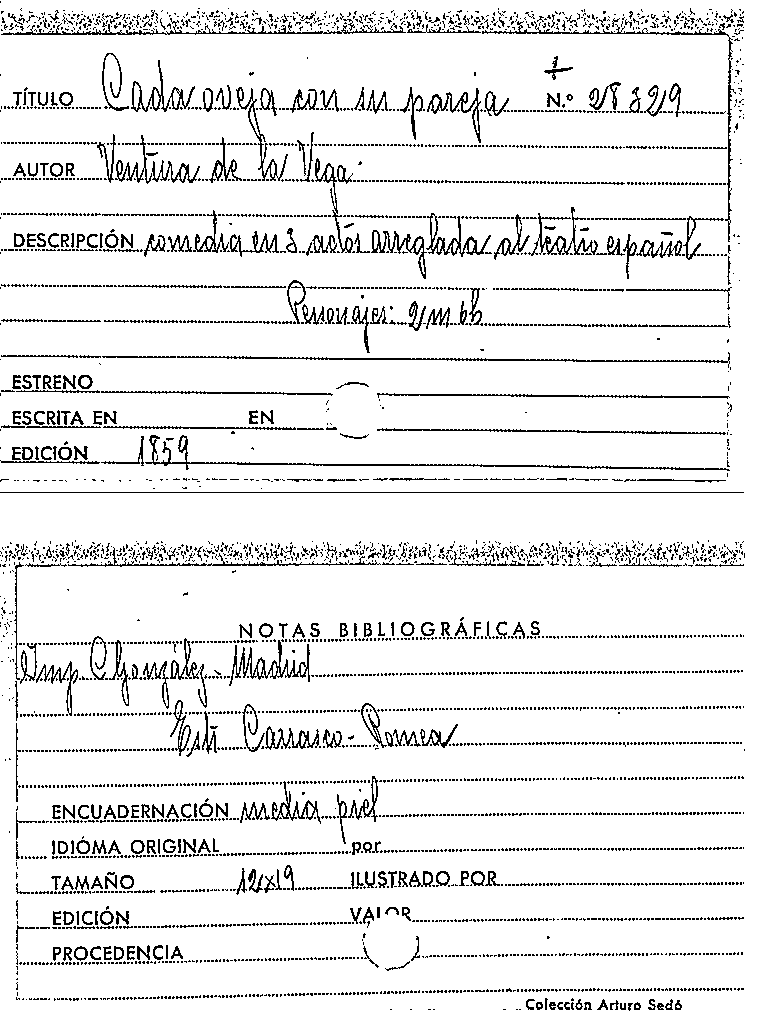 TÍTULO Cada oveja con su pareja N.º 28329
AUTOR Ventura de la Vega
DESCRIPCIÓN comedia en 3 actos arreglada al teatro español
Personajes: 2 m 6h
ESTRENO
ESCRITA EN EN
EDICIÓN 1859
NOTAS BIBLIOGRÁFICAS
Imp C González - Madrid
Est Carrasco - Romea
ENCUADERNACIÓN media piel
IDIÓMA ORIGINAL por
TAMAÑO 12x19 ILUSTRADO POR
EDICIÓN VALOR
PROCEDENCIA
Colección Arturo Sedó